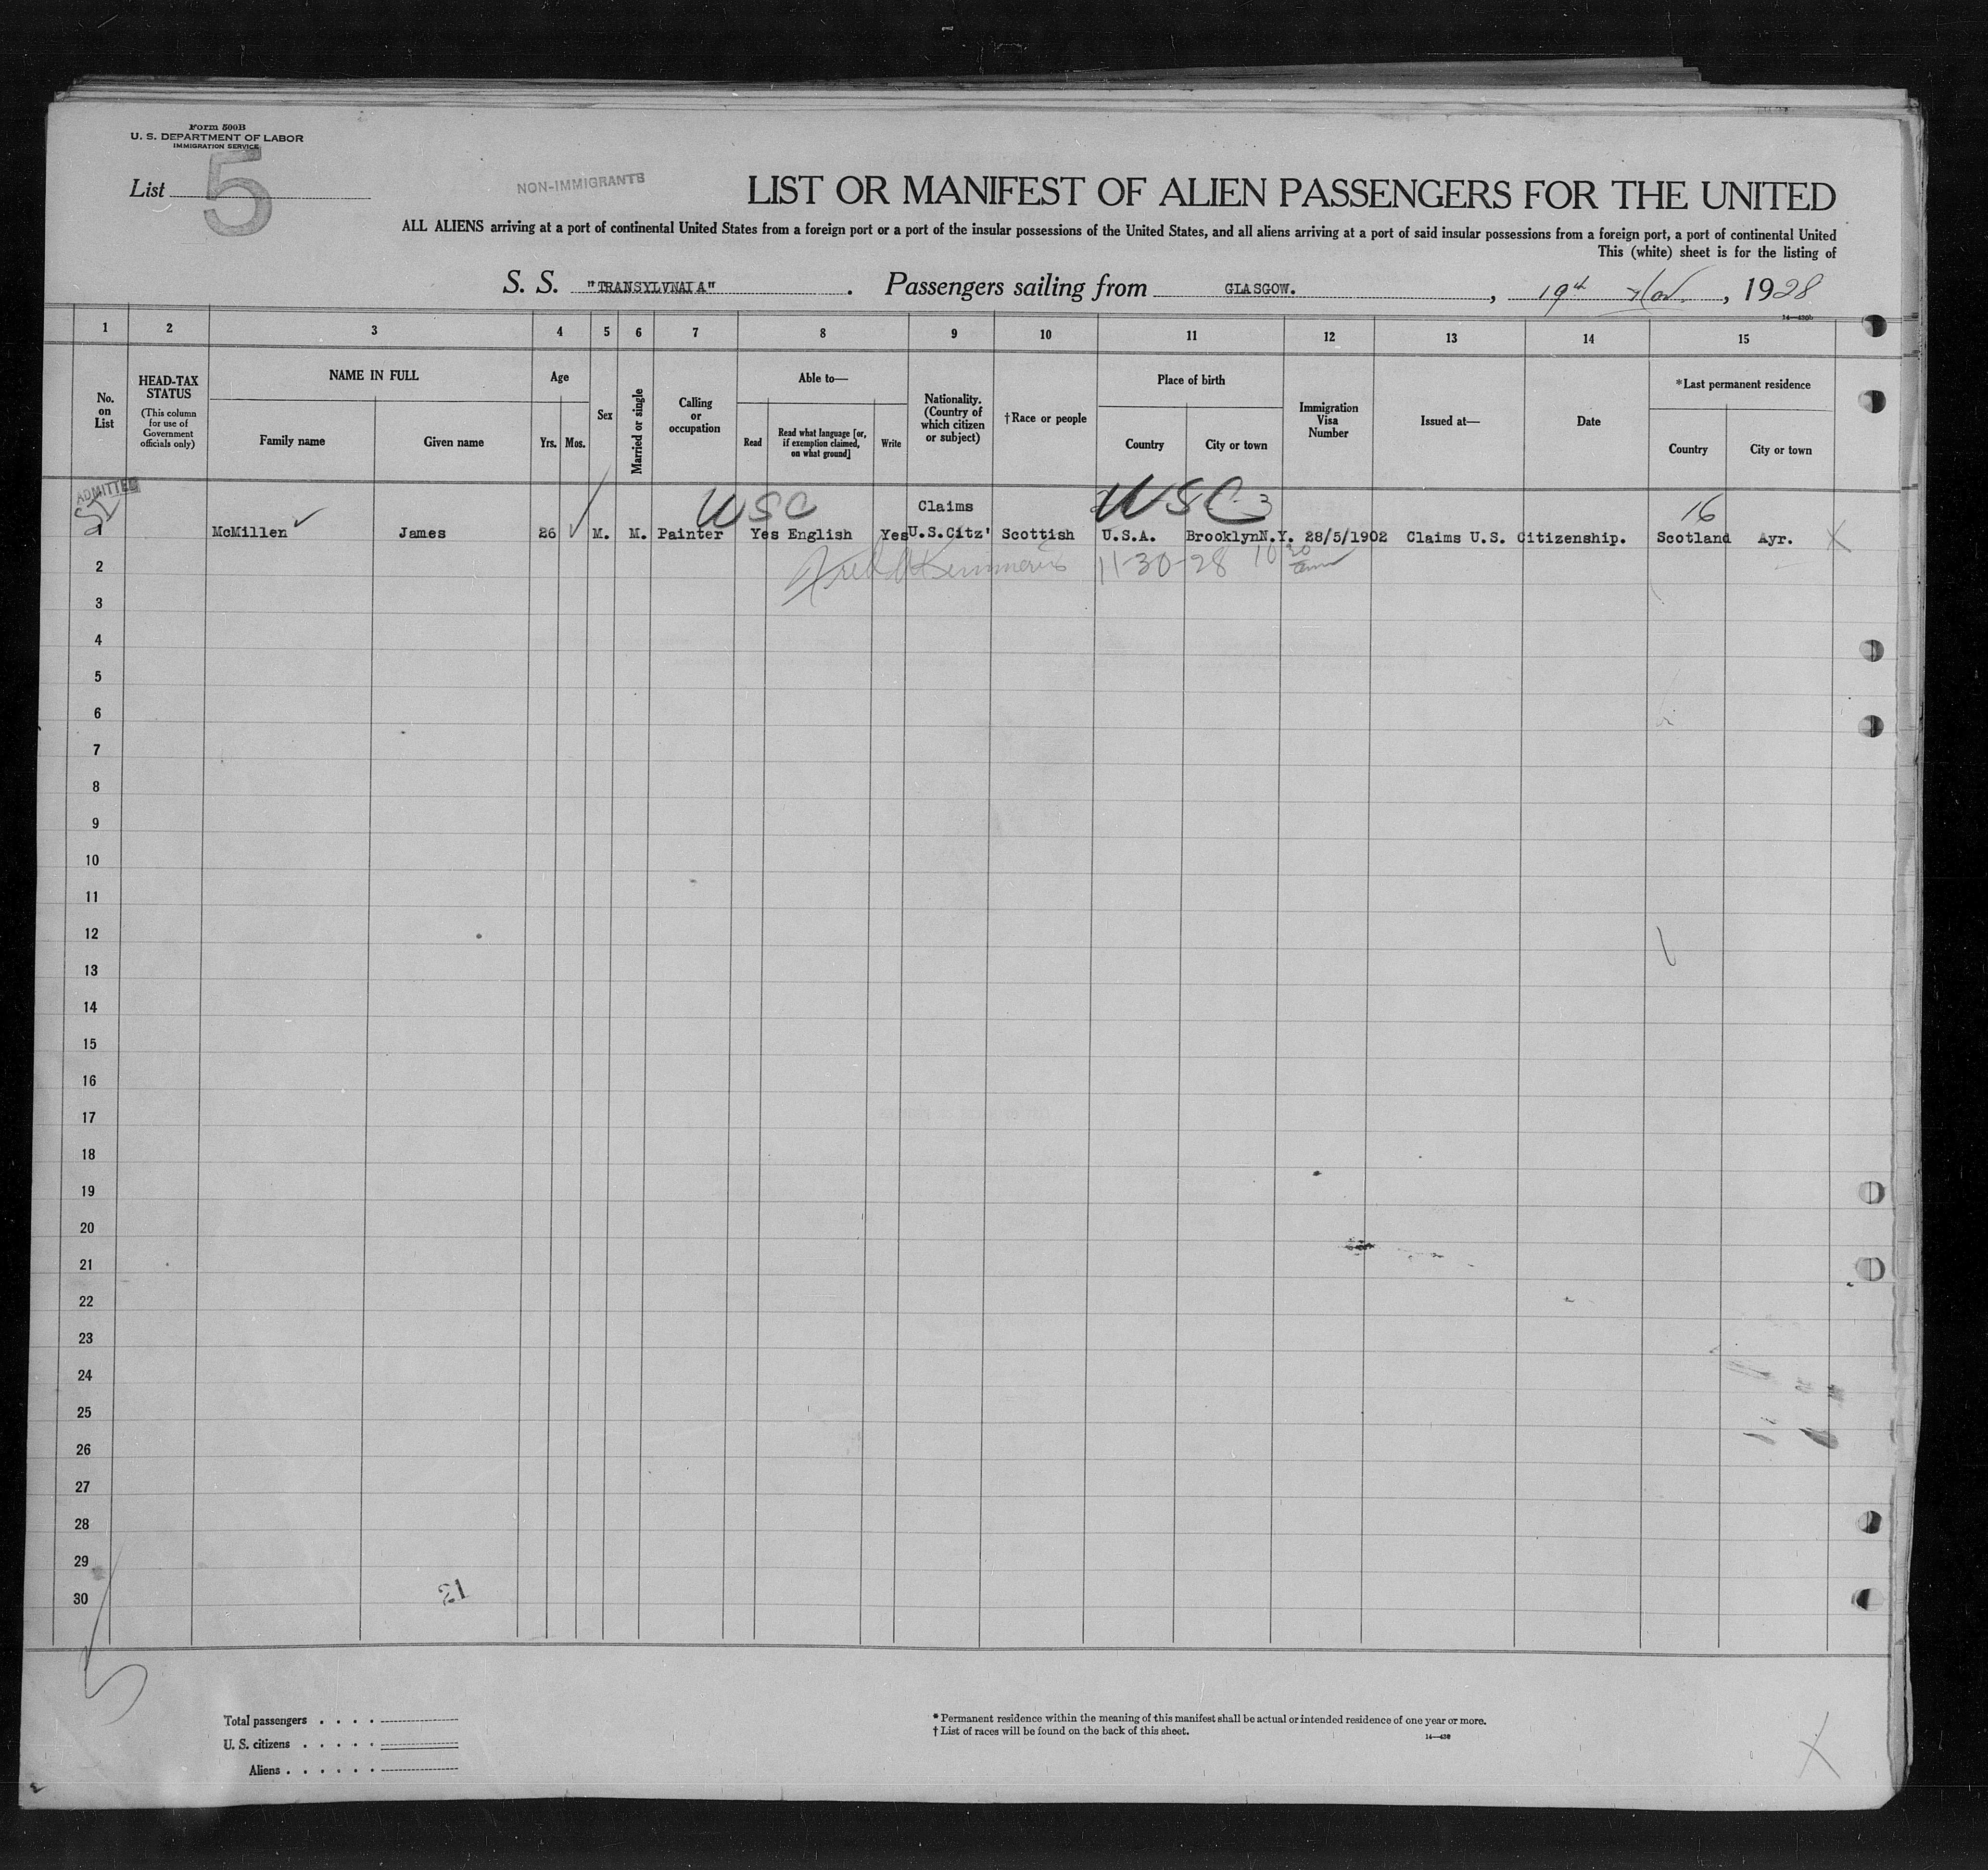 Form 500B
U. S. DEPARTMENT OF LABOR
IMMIGRATION SERVICE
List 5
NON-IMMIGRANTS
LIST OR MANIFEST OF ALIEN PASSENGERS FOR THE UNITED
ALL ALIENS arriving at a port of continental United States from a foreign port or a port of the insular possessions of the United States, and all aliens arriving at a port of said insular possessions from a foreign port, a port of continental United
This (white) sheet is for the listing of
S. S. "TRANSYLVNAIA". Passengers sailing from GLASGOW., 19th Nov., 1928
14—430b
1 2 3 4 5 6 7 8 9 10 11 12 13 14 15
No. on List
HEAD-TAX STATUS
(This column for use of Government officials only)
NAME IN FULL
Family name
Given name
Age
Yrs.
Mos.
Sex
Married or single
Calling or occupation
Able to—
Read
Read what language [or, if exemption claimed, on what ground]
Write
Nationality. (Country of which citizen or subject)
†Race or people
Place of birth
Country
City or town
Immigration Visa Number
Issued at—
Date
*Last permanent residence
Country
City or town
ADMITTED
WSC
Claims
WSC 3
16
1 McMillen James 26 M. M. Painter Yes English Yes U.S.Citz' Scottish U.S.A. BrooklynN.Y. 28/5/1902 Claims U.S. Citizenship. Scotland Ayr. X
2 11-30-28 10
3
4
5
6
7
8
9
10
11
12
13
14
15
16
17
18
19
20
21
22
23
24
25
26
27
28
29
30
21
Total passengers . . . .
U. S. citizens . . . . .
Aliens . . . . . .
* Permanent residence within the meaning of this manifest shall be actual or intended residence of one year or more.
† List of races will be found on the back of this sheet.
14—430
X